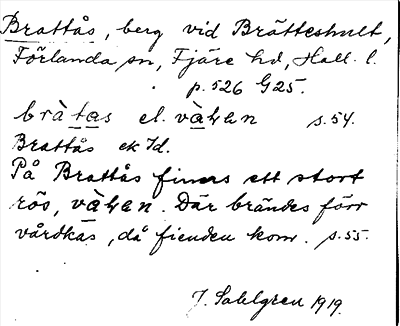 Brattås, berg vid Brätteshult,
Förlanda sn, Fjäre hd, Hall. l.
p. 526 G25.
bràtas el. vàƕan s. 54.
Brattås ek Jd.
På Brattås finnes ett stort
rös, vàƕan. Där brändes förr
vårdkas, då fienden kom. s. 55.
J. Sahlgren 1919.